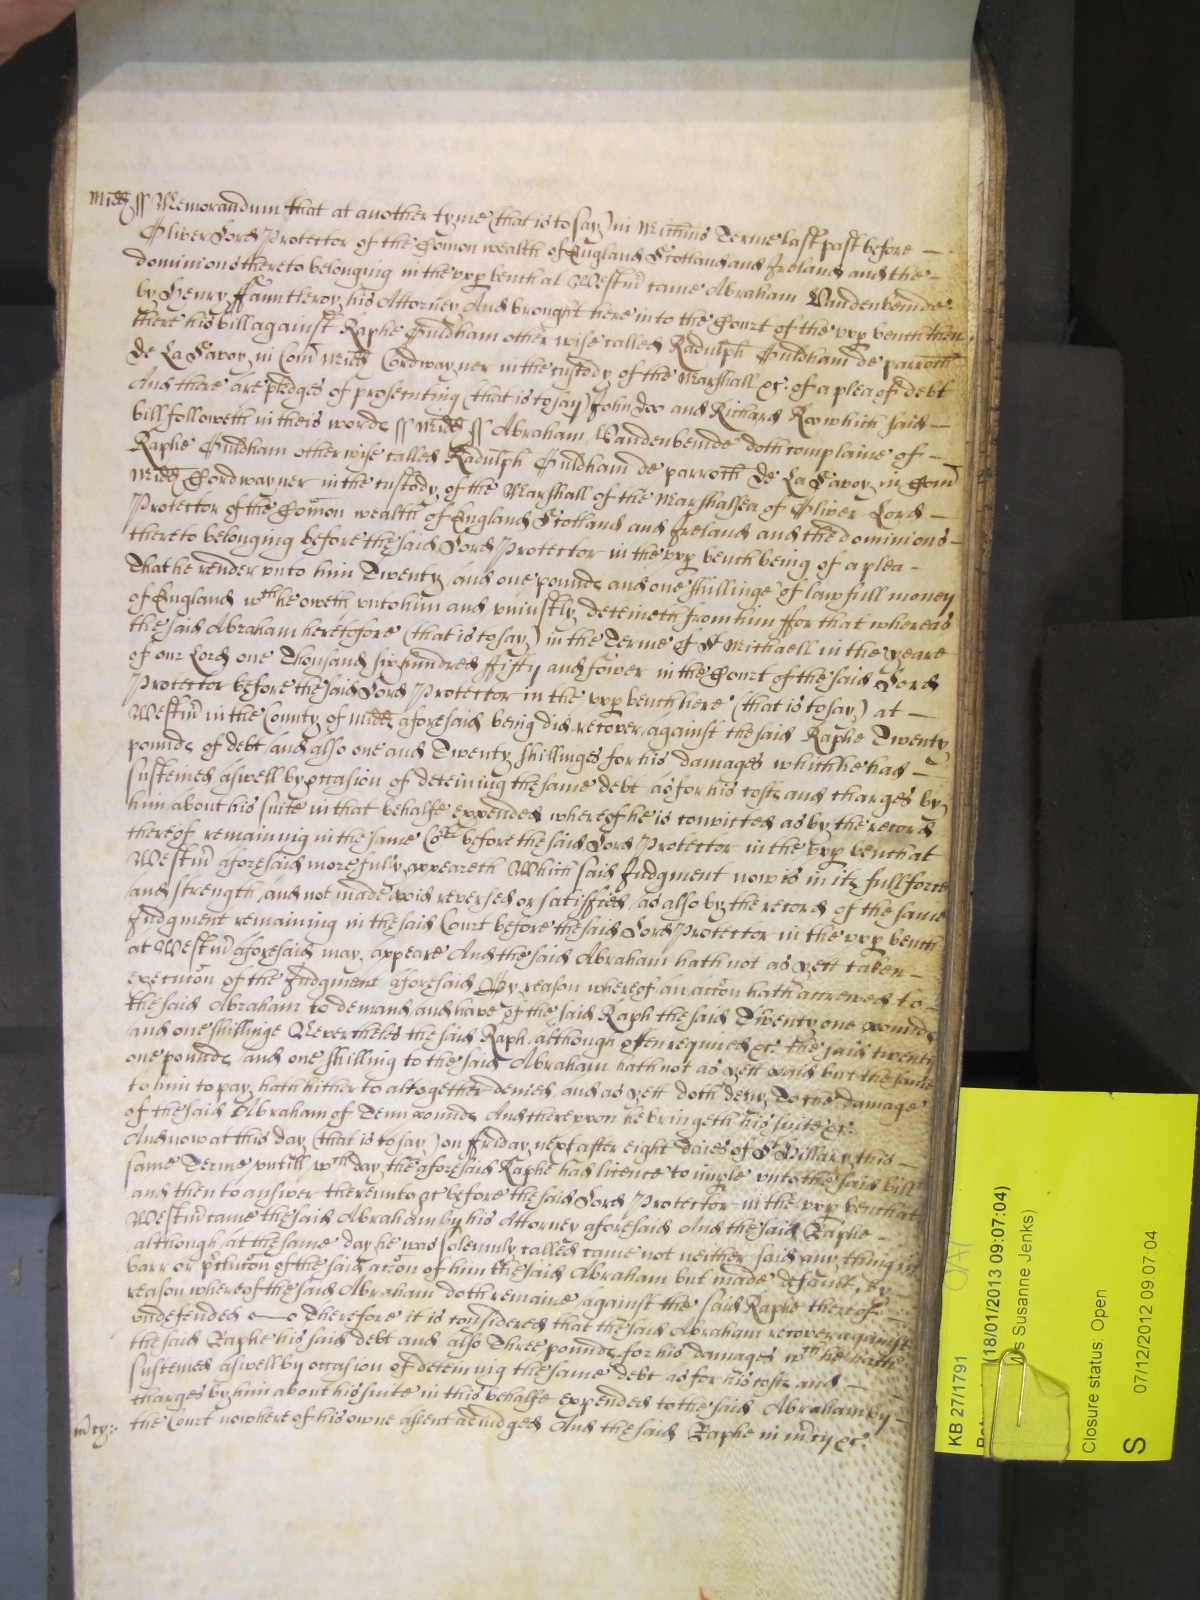 Midd ss Memorandum that at another tyme (that is to say) in Mich̃mis Terme last past before —
Oliver Lord Protector of the Com̃on wealth of England Scotland and Ireland and the —
dominions thereto belonging in the vpp bench at Westm̃ came Abraham Vandenbemde
by Henry Fauntleroy his Attorney And brought here into the Court of the vpp bench then
there his bill against Raphe Guldham other wise called Radulph Guldham de parroch
De La Savoy in Com̃ Midd Cordwayner in the custody of the Marshall &c: of a plea of debt
And there are pledges of prosecuting (that is to say) John Doo and Richard Roo which said —
bill followeth in theis wordes ss Midd ss Abraham Vandenbemde doth complaine of —
Raphe Guldham other wise called Radulph Guldham de parroch De La Savoy in Com̃
Midd Cordwayner in the custody of the Marshall of the Marshalsea of Oliver Lord —
Protector of the Com̃on wealth of England Scotland and Ireland and the dominions —
thereto belonging before the said Lord Protector in the vpp bench being of a plea —
That he render vnto him Twenty and one poundes and one shillinge of lawfull money
of England wch he oweth vnto him and vniustly deteineth from him ffor that whereas
the said Abraham heretofore (that is to say) in the Terme of St Michaell in the yeare
of our Lord one Thousand six hundred fifty and fower in the Court of the said Lord
Protector before the said Lord Protector in the vpp bench here (that is to say) at —
Westm̃ in the County of Midd aforesaid being did recover against the said Raphe Twenty
poundes of debt and also one and Twenty shillinges for his damages which he had —
susteined aswell by occasion of deteining the same debt as for his costes and charges by
him about his suite in that behalfe expended whereof he is convicted as by the record
thereof remaining in the same Cort before the said Lord Protector in the vpp bench at
Westm̃ aforesaid more fully appeareth Which said Judgment now is in its full force
and strength and not made void reversed or satisfied as also by the record of the same
Judgment remaining in the said Court before the said Lord Protector in the vpp bench
at Westm̃ aforesaid may appeare And the said Abraham hath not as yett taken —
execuc̃on of the Judgment aforesaid By reason whereof an acc̃on hath accrewed to —
the said Abraham to demand and have of the said Raph the said Twenty one poundes
and one shillinge Neverthelés the said Raph although often required &c: the said twenty
one poundes and one shilling to the said Abraham hath not as yett paid but the same
to him to pay hath hitherto altogether denied and as yett doth deny To the damage
of the said Abraham of Tenn poundes And therevpon he bringeth his suite &c:
And now at this day (that is to say) on Friday next after eight daies of St Hillary this —
same Terme vntill wch day the aforesaid Raphe had licence to imple vnto the said bill
and then to answer thereunto &c before the said Lord Protector in the vpp bench at
Westm̃ came the said Abraham by his Attorney aforesaid And the said Raphe —
although at the same day he was solemnly called came not neither said any thing in
barr or p̃cluc̃on of the said acc̃on of him the said Abraham but made default, By
reason whereof the said Abraham doth remaine against the said Raphe thereof —
vndefended Therefore it is considered that the said Abraham recover against
the said Raphe his said debt and also Three poundes for his damages wch he hath
susteined aswell by occasion of deteining the same debt as for his costes and —
charges by him about his suite in this behalfe expended to the said Abraham by —
m̃cy:: the Court nowhere of his owne assent adiudged And the said Raphe in m̃cy &c:
KB 27/1791
(18/01/2013 09:07:04)
Ms Susanne Jenks)
Closure status: Open
S 07/12/2012 09:07:04